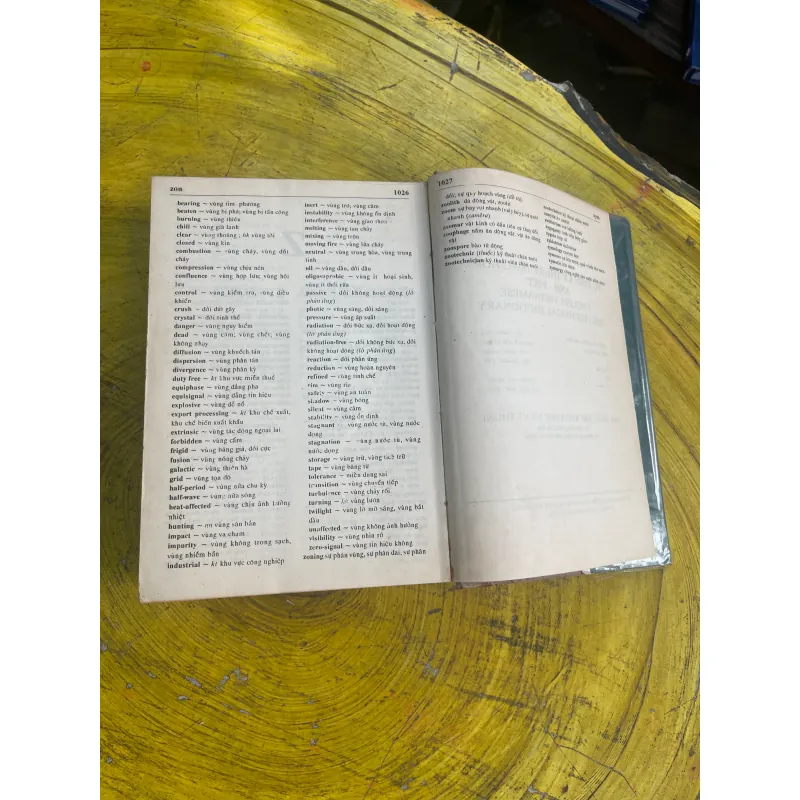 zon 1026
bearing ~ vùng tìm phương
beaten ~ vùng bị phá; vùng bị tấn công
burning ~ vùng thiêu
chill ~ vùng giá lạnh
clear ~ vùng thoáng;
closed ~ vùng kín
combustion ~ vùng cháy, vùng đốt
cháy
compression ~ vùng chịu nén
confluence ~ vùng hợp lưu; vùng hội
lưu
control ~ vùng kiểm tra, vùng điều
khiển
crush ~ đới đứt gãy
crystal ~ đới tinh thể
danger ~ vùng nguy hiểm
dead ~ vùng câm; vùng chết; vùng
không nhạy
diffusion ~ vùng khuếch tán
dispersion ~ vùng phân tán
divergence ~ vùng phân kỳ
duty free ~ kt khu vực miễn thuế
equiphase ~ vùng đẳng pha
equisignal ~ vùng đẳng tín hiệu
explosive ~ vùng dễ nổ
export processing ~ kt khu chế xuất,
khu chế biến xuất khẩu
extrinsic ~ vùng tác động ngoại lai
forbidden ~ vùng cấm
frigid ~ vùng băng giá, đới cực
fusion ~ vùng nóng chảy
galactic ~ vùng thiên hà
grid ~ vùng tọa độ
half-period ~ vùng nửa chu kỳ
half-wave ~ vùng nửa sóng
heat-affected ~ vùng chịu ảnh hưởng
nhiệt
hunting ~ nn vùng săn bắn
impact ~ vùng va chạm
impurity ~ vùng không trong sạch,
vùng nhiễm bẩn
industrial ~ kt khu vực công nghiệp
inert ~ vùng trơ, vùng câm
instability ~ vùng không ổn định
interference ~ vùng giao thoa
melting ~ vùng tan chảy
mixing ~ vùng trộn
moving fire ~ vùng lửa cháy
neutral ~ vùng trung hòa, vùng trung
tính
oil ~ vùng dầu, đới dầu
oligosaprobic ~ vùng ít hoại sinh,
vùng ít thối rữa
passive ~ đới không hoạt động (lò
phản ứng)
photic ~ vùng sáng, đới sáng
pressure ~ vùng áp suất
radiation ~ đới bức xạ, đới hoạt động
(lò phản ứng)
radiation-free ~ đới không bức xạ, đới
không hoạt động (lò phản ứng)
reaction ~ đới phản ứng
reduction ~ vùng hoàn nguyên
refined ~ vùng tinh chế
rim ~ vùng rìa
safety ~ vùng an toàn
shadow ~ vùng bóng
silent ~ vùng câm
stability ~ vùng ổn định
stagnant ~ vùng nước tù, vùng nước
đọng
stagnation ~ vùng nước tù, vùng
nước đọng
storage ~ vùng trữ, vùng tích trữ
tape ~ vùng băng từ
tolerance ~ miền dung sai
transition ~ vùng chuyển tiếp
turbulence ~ vùng chảy rối
turning ~ vùng lượn
twilight ~ vùng lờ mờ sáng, vùng bắt
đầu
unaffected ~ vùng không ảnh hưởng
visibility ~ vùng nhìn rõ
zero-signal ~ vùng tín hiệu không
zoning sự phân vùng, sự phân đai, sự phân
1027
đới; sự quy hoạch vùng (đô thị)
zoolith đá động vật, zoolit
zoom
nhanh (camêra)
zoophage
vật
zoospore bào tử động
zootechnic (thuộc) kỹ thuật chăn nuôi
zootechnician kỹ thuật viên chăn nuôi